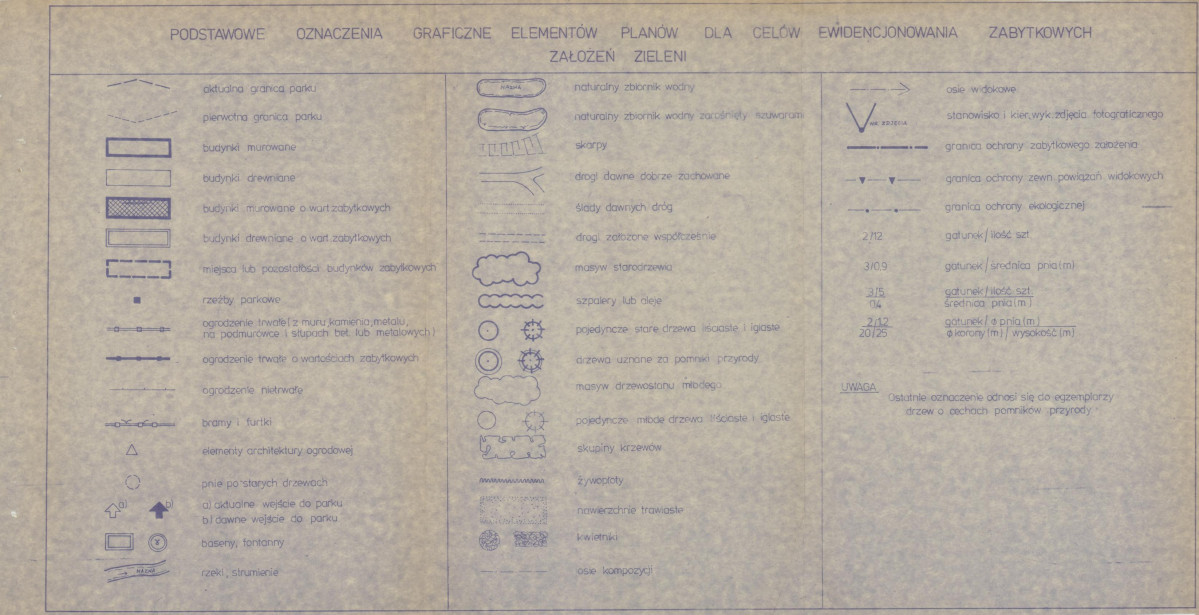 PODSTAWOWE OZNACZENIA GRAFICZNE ELEMENTÓW PLANÓW DLA CELÓW EWIDENCJONOWANIA ZABYTKOWYCH
ZAŁOŻEŃ ZIELENI
aktualna granica parku
pierwotna granica parku
budynki murowane
budynki drewniane
budynki murowane o wart. zabytkowych
budynki drewniane o wart. zabytkowych
miejsca lub pozostałości budynków zabytkowych
rzeźby parkowe
ogrodzenie trwałe (z muru, kamienia, metalu,
na podmurówce i słupach bet. lub metalowych)
ogrodzenie trwałe o wartościach zabytkowych
ogrodzenie nietrwałe
bramy i furtki
elementy architektury ogrodowej
pnie po starych drzewach
a) b) a) aktualne wejście do parku
b) dawne wejście do parku
baseny, fontanny
NAZWA rzeki, strumienie
NAZWA naturalny zbiornik wodny
naturalny zbiornik wodny zarośnięty szuwarami
skarpy
drogi dawne dobrze zachowane
ślady dawnych dróg
drogi założone współcześnie
masyw starodrzewia
szpalery lub aleje
pojedyncze stare drzewa liściaste i iglaste
drzewa uznane za pomniki przyrody
masyw drzewostanu młodego
pojedyncze młode drzewa liściaste i iglaste
skupiny krzewów
żywopłoty
nawierzchnie trawiaste
kwietniki
osie kompozycji
osie widokowe
NR ZDJĘCIA stanowisko i kier. wyk. zdjęcia fotograficznego
granica ochrony zabytkowego założenia
granica ochrony zewn. powiązań widokowych
granica ochrony ekologicznej
2/12 gatunek / ilość szt.
3/0.9 gatunek / średnica pnia (m)
3/5 gatunek / ilość szt.
0.4 średnica pnia (m)
2/1.2 gatunek / φ pnia (m)
20/25 φ korony (m) / wysokość (m)
UWAGA
Ostatnie oznaczenie odnosi się do egzemplarzy
drzew o cechach pomników przyrody